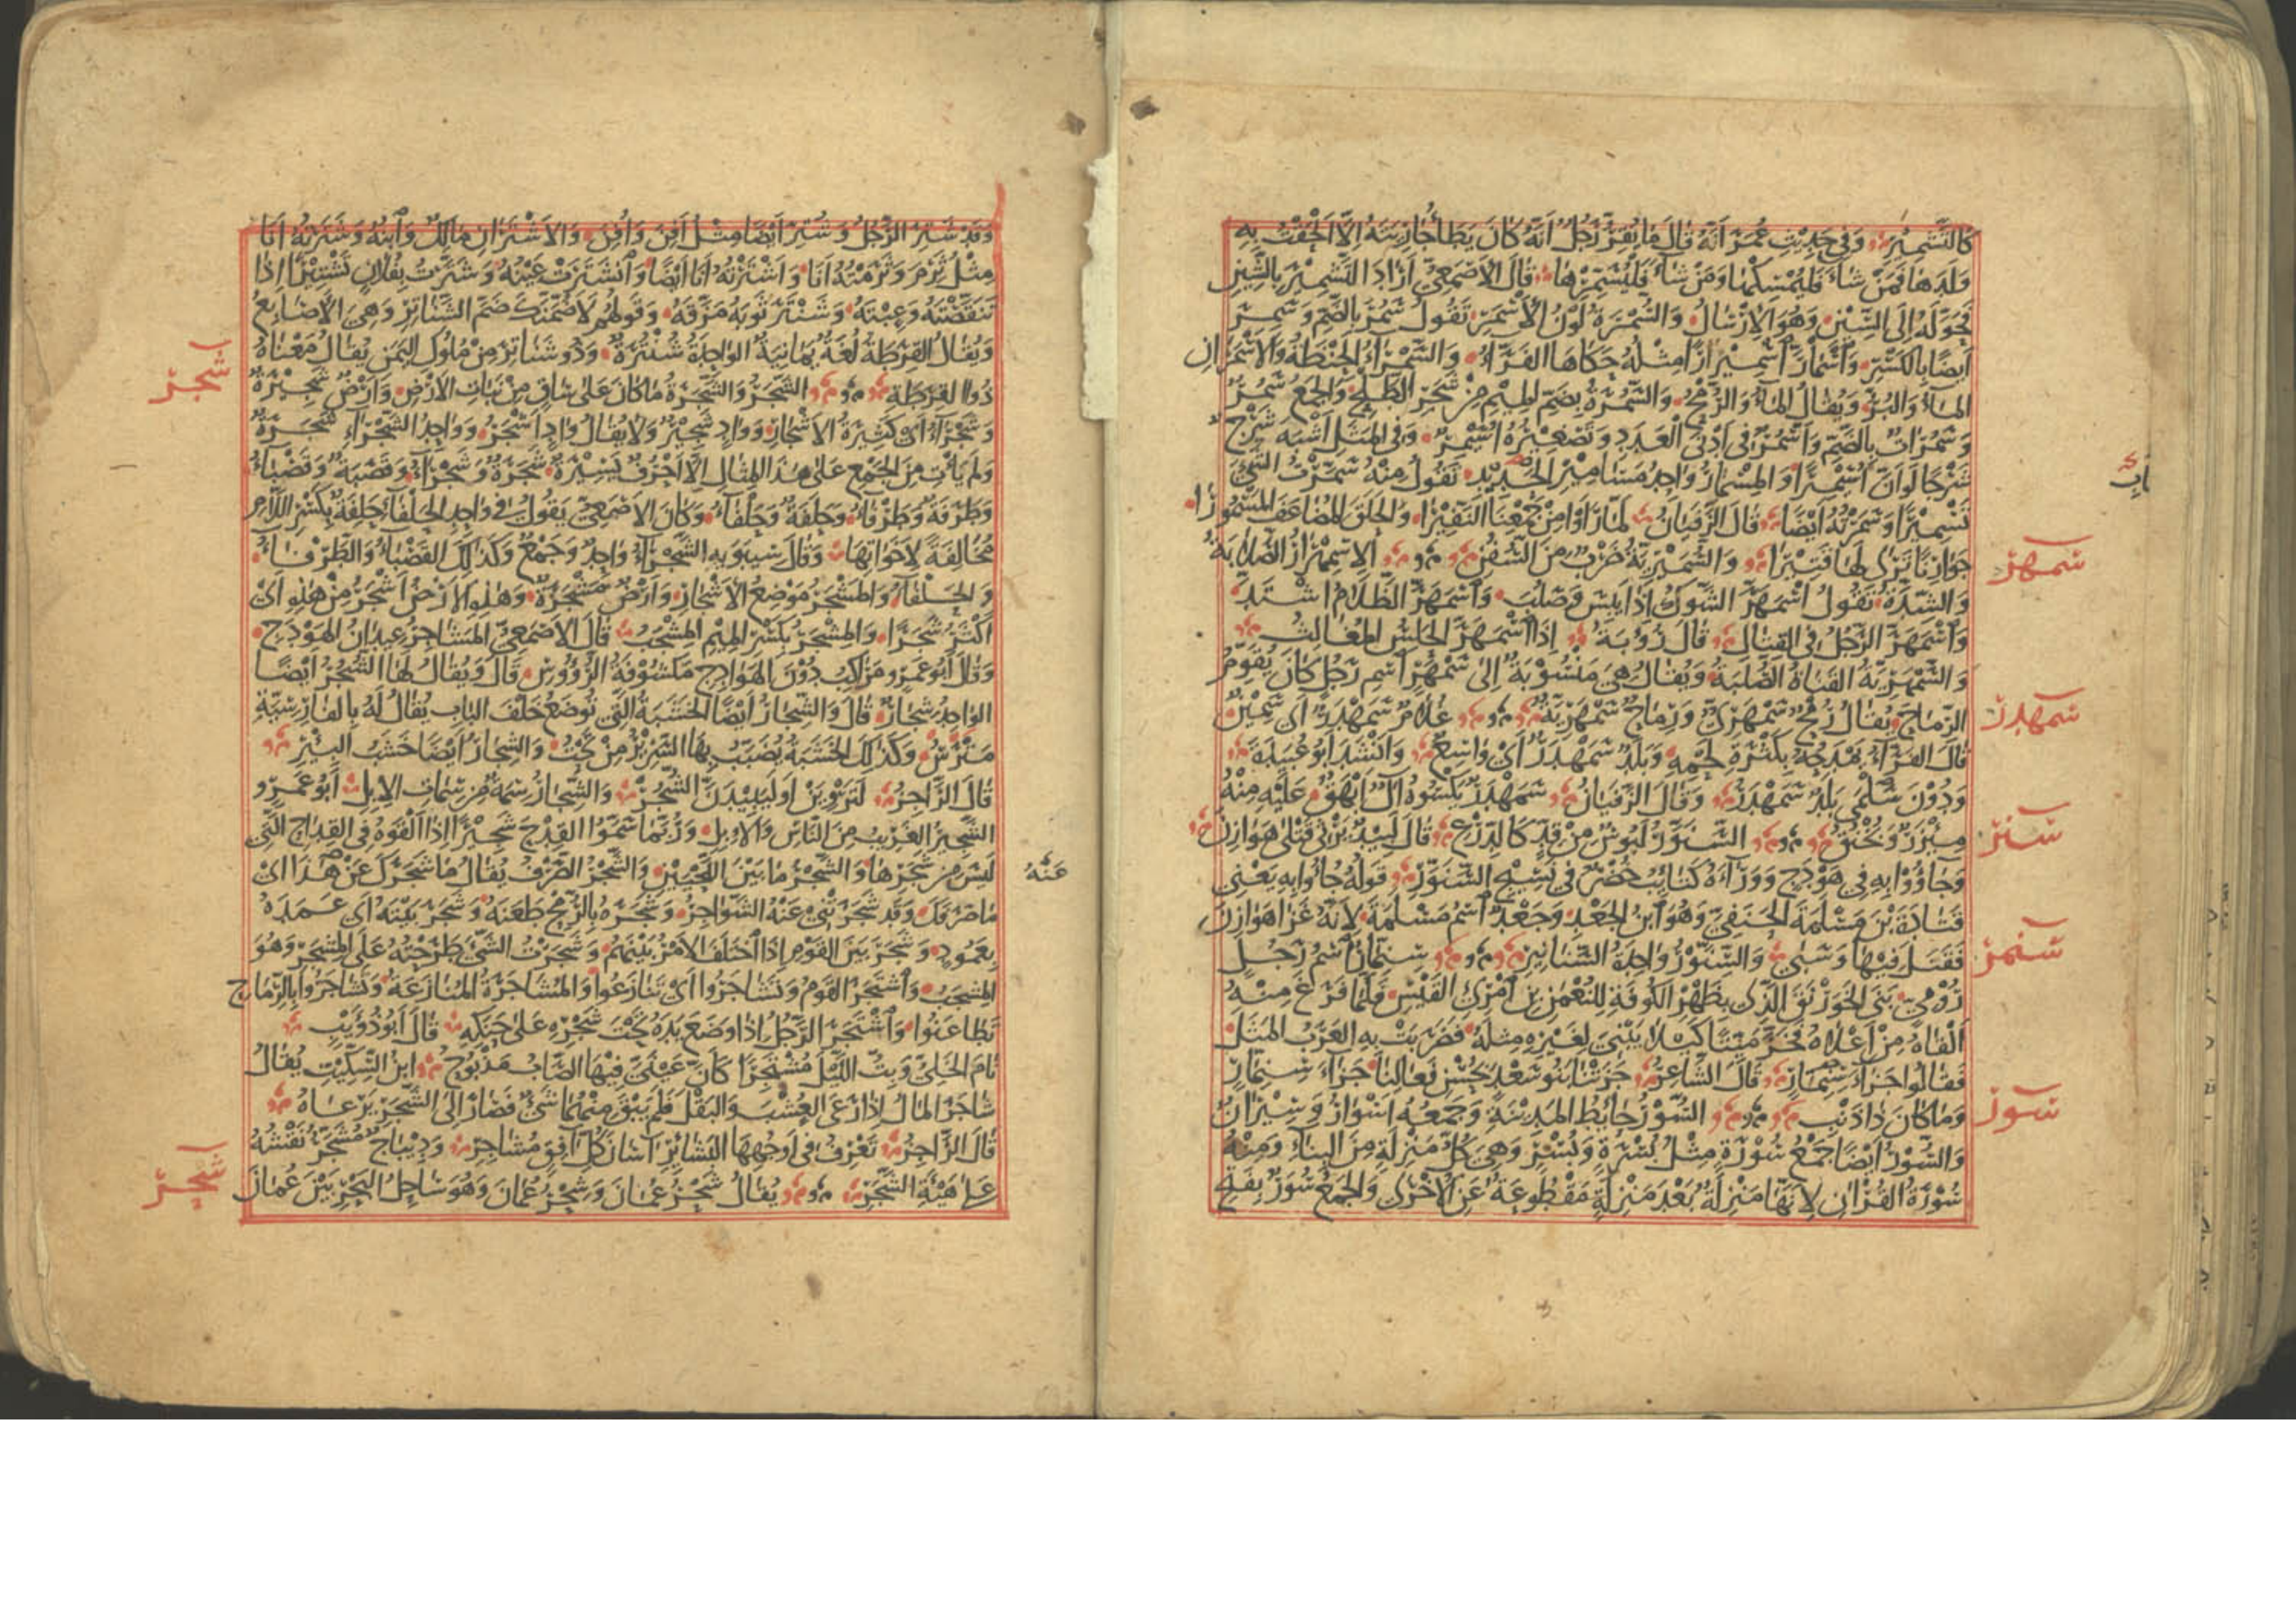 كَالتَّشْمِيْرِ وَفِي حَدِيْثِ عُمَرَ أَنَّهُ قَالَ مَا يُقِرُّ رَجُلٌ أَنَّهُ كَانَ يَطَأُ جَارِيَتَهُ إِلَّا أَلْحَقْتُ بِهِ
وَلَدَهَا فَمَنْ شَاءَ فَلْيُمْسِكْهَا وَمَنْ شَاءَ فَلْيُسَمِّرْهَا قَالَ الْأَصْمَعِيُّ أَرَادَ التَّشْمِيْرَ بِالشِّيْنِ
فَحَوَّلَهُ إِلَى السِّيْنِ وَهُوَ الْإِرْسَالُ وَالسُّمْرَةُ لَوْنُ الْأَسْمَرِ تَقُولُ سَمُرَ بِالضَّمِّ وَسَمِرَ
أَيْضًا بِالْكَسْرِ وَاسْمَارَّ اسْمِيْرَارًا مِثْلُهُ حَكَاهَا الْفَرَّاءُ وَالسَّمْرَاءُ الْحِنْطَةُ وَالْأَسْمَرَانِ
الْمَاءُ وَالْبُرُّ وَيُقَالُ الْمَاءُ وَالرُّمْحُ وَالسَّمُرَةُ بِضَمِّ الْمِيْمِ مِنْ شَجَرِ الطَّلْحِ وَالْجَمْعُ سَمُرٌ
وَسَمُرَاتٌ بِالضَّمِّ وَأَسْمُرٌ فِي أَدْنَى الْعَدَدِ وَتَصْغِيْرُهُ أُسَيْمِرٌ وَفِي الْمَثَلِ أَشْبَهَ شَرْجٌ
شَرْجًا لَوْ أَنَّ أُسَيْمِرًا وَالْمِسْمَارُ وَاحِدُ مَسَامِيْرِ الْحَدِيْدِ تَقُولُ مِنْهُ سَمَّرْتُ الشَّيْءَ
تَسْمِيْرًا وَسَمَرْتُهُ أَيْضًا قَالَ الزَّفَيَانُ لَمَّا رَأَوْا مِنْ جَمْعِنَا النَّفِيْرَا وَالْحَلَقَ الْمُضَاعَفَ الْمَسْمُورَا
جَوَازِنًا تَرَى لَهَا قَتِيْرَا وَالسُّمَيْرِيَّةُ ضَرْبٌ مِنَ السُّفُنِ الِاسْمِهْرَارُ الصَّلَابَةُ
وَالشِّدَّةُ تَقُولُ اسْمَهَرَّ الشَّوْكُ إِذَا يَبِسَ وَصَلُبَ وَاسْمَهَرَّ الظَّلَامُ اشْتَدَّ
وَاسْمَهَرَّ الرَّجُلُ فِي الْقِتَالِ قَالَ رُؤْبَةُ إِذَا اسْمَهَرَّ الْحَلِسُ الْمُغَالِثُ
وَالسَّمْهَرِيَّةُ الْقَنَاةُ الصُّلْبَةُ وَيُقَالُ هِيَ مَنْسُوبَةٌ إِلَى سَمْهَرٍ اسْمِ رَجُلٍ كَانَ يُقَوِّمُ
الرِّمَاحَ يُقَالُ رُمْحٌ سَمْهَرِيٌّ وَرِمَاحٌ سَمْهَرِيَّةٌ غُلَامٌ سَمَهْدَرٌ أَيْ سَمِيْنٌ
قَالَ الْفَرَّاءُ يَمْدَحُهُ بِكَثْرَةِ لَحْمِهِ وَبَلَدٌ سَمَهْدَرٌ أَيْ وَاسِعٌ وَأَنْشَدَ أَبُو عُبَيْدَةَ
وَدُوْنَ سَلْمَى بَلَدٌ سَمَهْدَرُ وَقَالَ الزَّفَيَانُ سَمَهْدَرٌ يَكْسُوهُ آلٌ أَبْهَقُ عَلَيْهِ مِنْهُ
مِئْزَرٌ وَبُخْنُقُ السَّنَوَّرُ لَبُوسٌ مِنْ قِدٍّ كَالدِّرْعِ قَالَ لَبِيْدٌ يَرْثِي قَتْلَى هَوَازِنَ
وَجَاؤُوا بِهِ فِي هَوْدَجٍ وَوَرَاءَهُ كَتَائِبُ خُضْرٌ فِي نَسِيْجِ السَّنَوَّرِ قَوْلُهُ جَاؤُا بِهِ يَعْنِي
قَتَادَةَ بْنَ مَسْلَمَةَ الْحَنَفِيَّ وَهُوَ ابْنُ الْجَعْدِ وَجَعْدٌ اسْمُ مَسْلَمَةَ لِأَنَّهُ غَزَا هَوَازِنَ
فَقَتَلَ فِيْهَا وَسَبَى وَالسِّنَّوْرُ وَاحِدُ السَّنَانِيْرِ سِنِمَّارٌ اسْمُ رَجُلٍ
رُوْمِيٍّ بَنَى الْخَوَرْنَقَ الَّذِي بِظَهْرِ الْكُوفَةِ لِلنُّعْمٰنِ بْنِ امْرِئِ الْقَيْسِ فَلَمَّا فَرَغَ مِنْهُ
أَلْقَاهُ مِنْ أَعْلَاهُ فَخَرَّ مَيِّتًا كَيْلَا يَبْنِيَ لِغَيْرِهِ مِثْلَهُ فَضَرَبَتْ بِهِ الْعَرَبُ الْمَثَلَ
فَقَالُوا جَزَاءَ سِنِمَّارٍ قَالَ الشَّاعِرُ جَزَتْنَا بَنُو سَعْدٍ بِحُسْنِ فَعَالِنَا جَزَاءَ سِنِمَّارٍ
وَمَا كَانَ ذَا ذَنْبِ السُّوْرُ حَائِطُ الْمَدِيْنَةِ وَجَمْعُهُ أَسْوَارٌ وَسِيْرَانٌ
وَالسُّوْرُ أَيْضًا جَمْعُ سُوْرَةٍ مِثْلُ بُسْرَةٍ وَبُسْرٍ وَهِيَ كُلُّ مَنْزِلَةٍ مِنَ الْبِنَاءِ وَمِنْهُ
سُوْرَةُ الْقُرْآنِ لِأَنَّهَا مَنْزِلَةٌ بَعْدَ مَنْزِلَةٍ مَقْطُوعَةٌ عَنِ الْأُخْرَى وَالْجَمْعُ سُوَرٌ بِفَتْحِ
سمهر
سمهدر
سنر
سنمر
سور
وَقَدْ شَتِرَ الرَّجُلُ وَشُتِرَ أَيْضًا مِثْلُ أَفِنَ وَأُفِنَ وَالْأَشْتَرَانِ مَالِكٌ وَابْنُهُ وَشَتَرْتُهُ أَنَا
مِثْلُ ثَرِمَ وَثَرَمْتُهُ أَنَا وَأَشْتَرْتُهُ أَنَا أَيْضًا وَانْشَتَرَتْ عَيْنُهُ وَشَتَّرْتُ بِفُلَانٍ تَشْتِيْرًا إِذَا
تَنَقَّصْتَهُ وَعِبْتَهُ وَشَنْتَرَ ثَوْبَهُ مَزَّقَهُ وَقَوْلُهُمْ لَأَضُمَّنَّكَ ضَمَّ الشَّنَاتِرِ وَهِيَ الْأَصَابِعُ
وَيُقَالُ الْقِرَطَةُ لُغَةٌ يَمَانِيَةٌ الْوَاحِدَةُ شُنْتُرَةٌ وَذُو شَنَاتِرَ مِنْ مُلُوكِ الْيَمَنِ يُقَالُ مَعْنَاهُ
ذُو الْقِرَطَةِ الشَّجَرُ وَالشَّجَرَةُ مَا كَانَ عَلَى سَاقٍ مِنْ نَبَاتِ الْأَرْضِ وَأَرْضٌ شَجِيْرَةٌ
وَشَجْرَاءُ أَيْ كَثِيْرَةُ الْأَشْجَارِ وَوَادٍ شَجِيْرٌ وَلَا يُقَالُ وَادٍ أَشْجَرُ وَوَاحِدُ الشَّجْرَاءِ شَجَرَةٌ
وَلَمْ يَأْتِ مِنَ الْجَمْعِ عَلَى هٰذَا الْمِثَالِ إِلَّا أَحْرُفٌ يَسِيْرَةٌ شَجَرَةٌ وَشَجْرَاءُ وَقَصَبَةٌ وَقَصْبَاءُ
وَطَرَفَةٌ وَطَرْفَاءُ وَحَلَفَةٌ وَحَلْفَاءُ وَكَانَ الْأَصْمَعِيُّ يَقُولُ فِي وَاحِدِ الْحَلْفَاءِ حَلِفَةٌ بِكَسْرِ اللَّامِ
مُخَالِفَةً لِأَخَوَاتِهَا وَقَالَ سِيبَوَيْهِ الشَّجْرَاءُ وَاحِدٌ وَجَمْعٌ وَكَذٰلِكَ الْقَصْبَاءُ وَالطَّرْفَاءُ
وَالْحَلْفَاءُ وَالْمَشْجَرُ مَوْضِعُ الْأَشْجَارِ وَأَرْضٌ مَشْجَرَةٌ وَهٰذِهِ الْأَرْضُ أَشْجَرُ مِنْ هٰذِهِ أَيْ
أَكْثَرُ شَجَرًا وَالْمِشْجَرُ بِكَسْرِ الْمِيْمِ الْمِشْجَبُ قَالَ الْأَصْمَعِيُّ الْمَشَاجِرُ عِيْدَانُ الْهَوْدَجِ
وَقَالَ أَبُو عَمْرٍو مَرَاكِبُ دُوْنَ الْهَوَادِجِ مَكْشُوْفَةُ الرُّؤُوْسِ قَالَ وَيُقَالُ لَهَا الشُّجُرُ أَيْضًا
الْوَاحِدُ شِجَارٌ قَالَ وَالشِّجَارُ أَيْضًا الْخَشَبَةُ الَّتِي تُوضَعُ خَلْفَ الْبَابِ يُقَالُ لَهُ بِالْفَارِسِيَّةِ
مَتَرْسْ وَكَذٰلِكَ الْخَشَبَةُ يُضَبَّبُ بِهَا السَّرِيْرُ مِنْ تَحْتُ وَالشِّجَارُ أَيْضًا خَشَبُ الْبِئْرِ
قَالَ الرَّاجِزُ لَتَرْوَيَنْ أَوْ لَتَبِيْدَنَّ الشُّجُرْ وَالشِّجَارُ سِمَةٌ مِنْ سِمَاتِ الْإِبِلِ أَبُو عَمْرٍو
الشَّجِيْرُ الْغَرِيْبُ مِنَ النَّاسِ وَالْإِبِلِ وَرُبَّمَا سَمَّوُا الْقِدْحَ شَجِيْرًا إِذَا أَلْقَوْهُ فِي الْقِدَاحِ الَّتِي
لَيْسَ مِنْ شَجَرِهَا وَالشَّجْرُ مَا بَيْنَ اللَّحْيَيْنِ وَالشَّجْرُ الصَّرْفُ يُقَالُ مَا شَجَرَكَ عَنْ هٰذَا أَيْ
مَا صَرَفَكَ وَقَدْ شَجَرَتْنِي عَنْهُ الشَّوَاجِرُ وَشَجَرَهُ بِالرُّمْحِ طَعَنَهُ وَشَجَرَ بَيْتَهُ أَيْ عَمَدَهُ
بِعَمُودٍ وَشَجَرَ بَيْنَ الْقَوْمِ إِذَا اخْتَلَفَ الْأَمْرُ بَيْنَهُمْ وَشَجَرْتُ الشَّيْءَ طَرَحْتُهُ عَلَى الْمِشْجَرِ وَهُوَ
الْمِشْجَبُ وَاشْتَجَرَ الْقَوْمُ وَتَشَاجَرُوا أَيْ تَنَازَعُوا وَالْمُشَاجَرَةُ الْمُنَازَعَةُ وَتَشَاجَرُوا بِالرِّمَاحِ
تَطَاعَنُوا وَاشْتَجَرَ الرَّجُلُ إِذَا وَضَعَ يَدَهُ تَحْتَ شَجْرِهِ عَلَى حَنَكِهِ قَالَ أَبُو ذُؤَيْبٍ
نَامَ الْخَلِيُّ وَبِتُّ اللَّيْلَ مُشْتَجِرًا كَأَنَّ عَيْنِيَ فِيْهَا الصَّابُ مَذْبُوحُ ابْنُ السِّكِّيْتِ يُقَالُ
شَاجَرَ الْمَالُ إِذَا رَعَى الْعُشْبَ وَالْبَقْلَ فَلَمْ يَبْقَ مِنْهُمَا شَيْءٌ فَصَارَ إِلَى الشَّجَرِ يَرْعَاهُ
قَالَ الرَّاجِزُ تَعْرِفُ فِي أَوْجُهِهَا الْبَشَائِرِ آسَانَ كُلِّ آفِقٍ مُشَاجِرِ وَدِيْبَاجٌ مُشَجَّرٌ نَقْشُهُ
عَلَى هَيْئَةِ الشَّجَرِ يُقَالُ شَحْرُ عُمَانَ وَشِحْرُ عُمَانَ وَهُوَ سَاحِلُ الْبَحْرِ بَيْنَ عُمَانَ
شجر
عَنْهُ
شحر